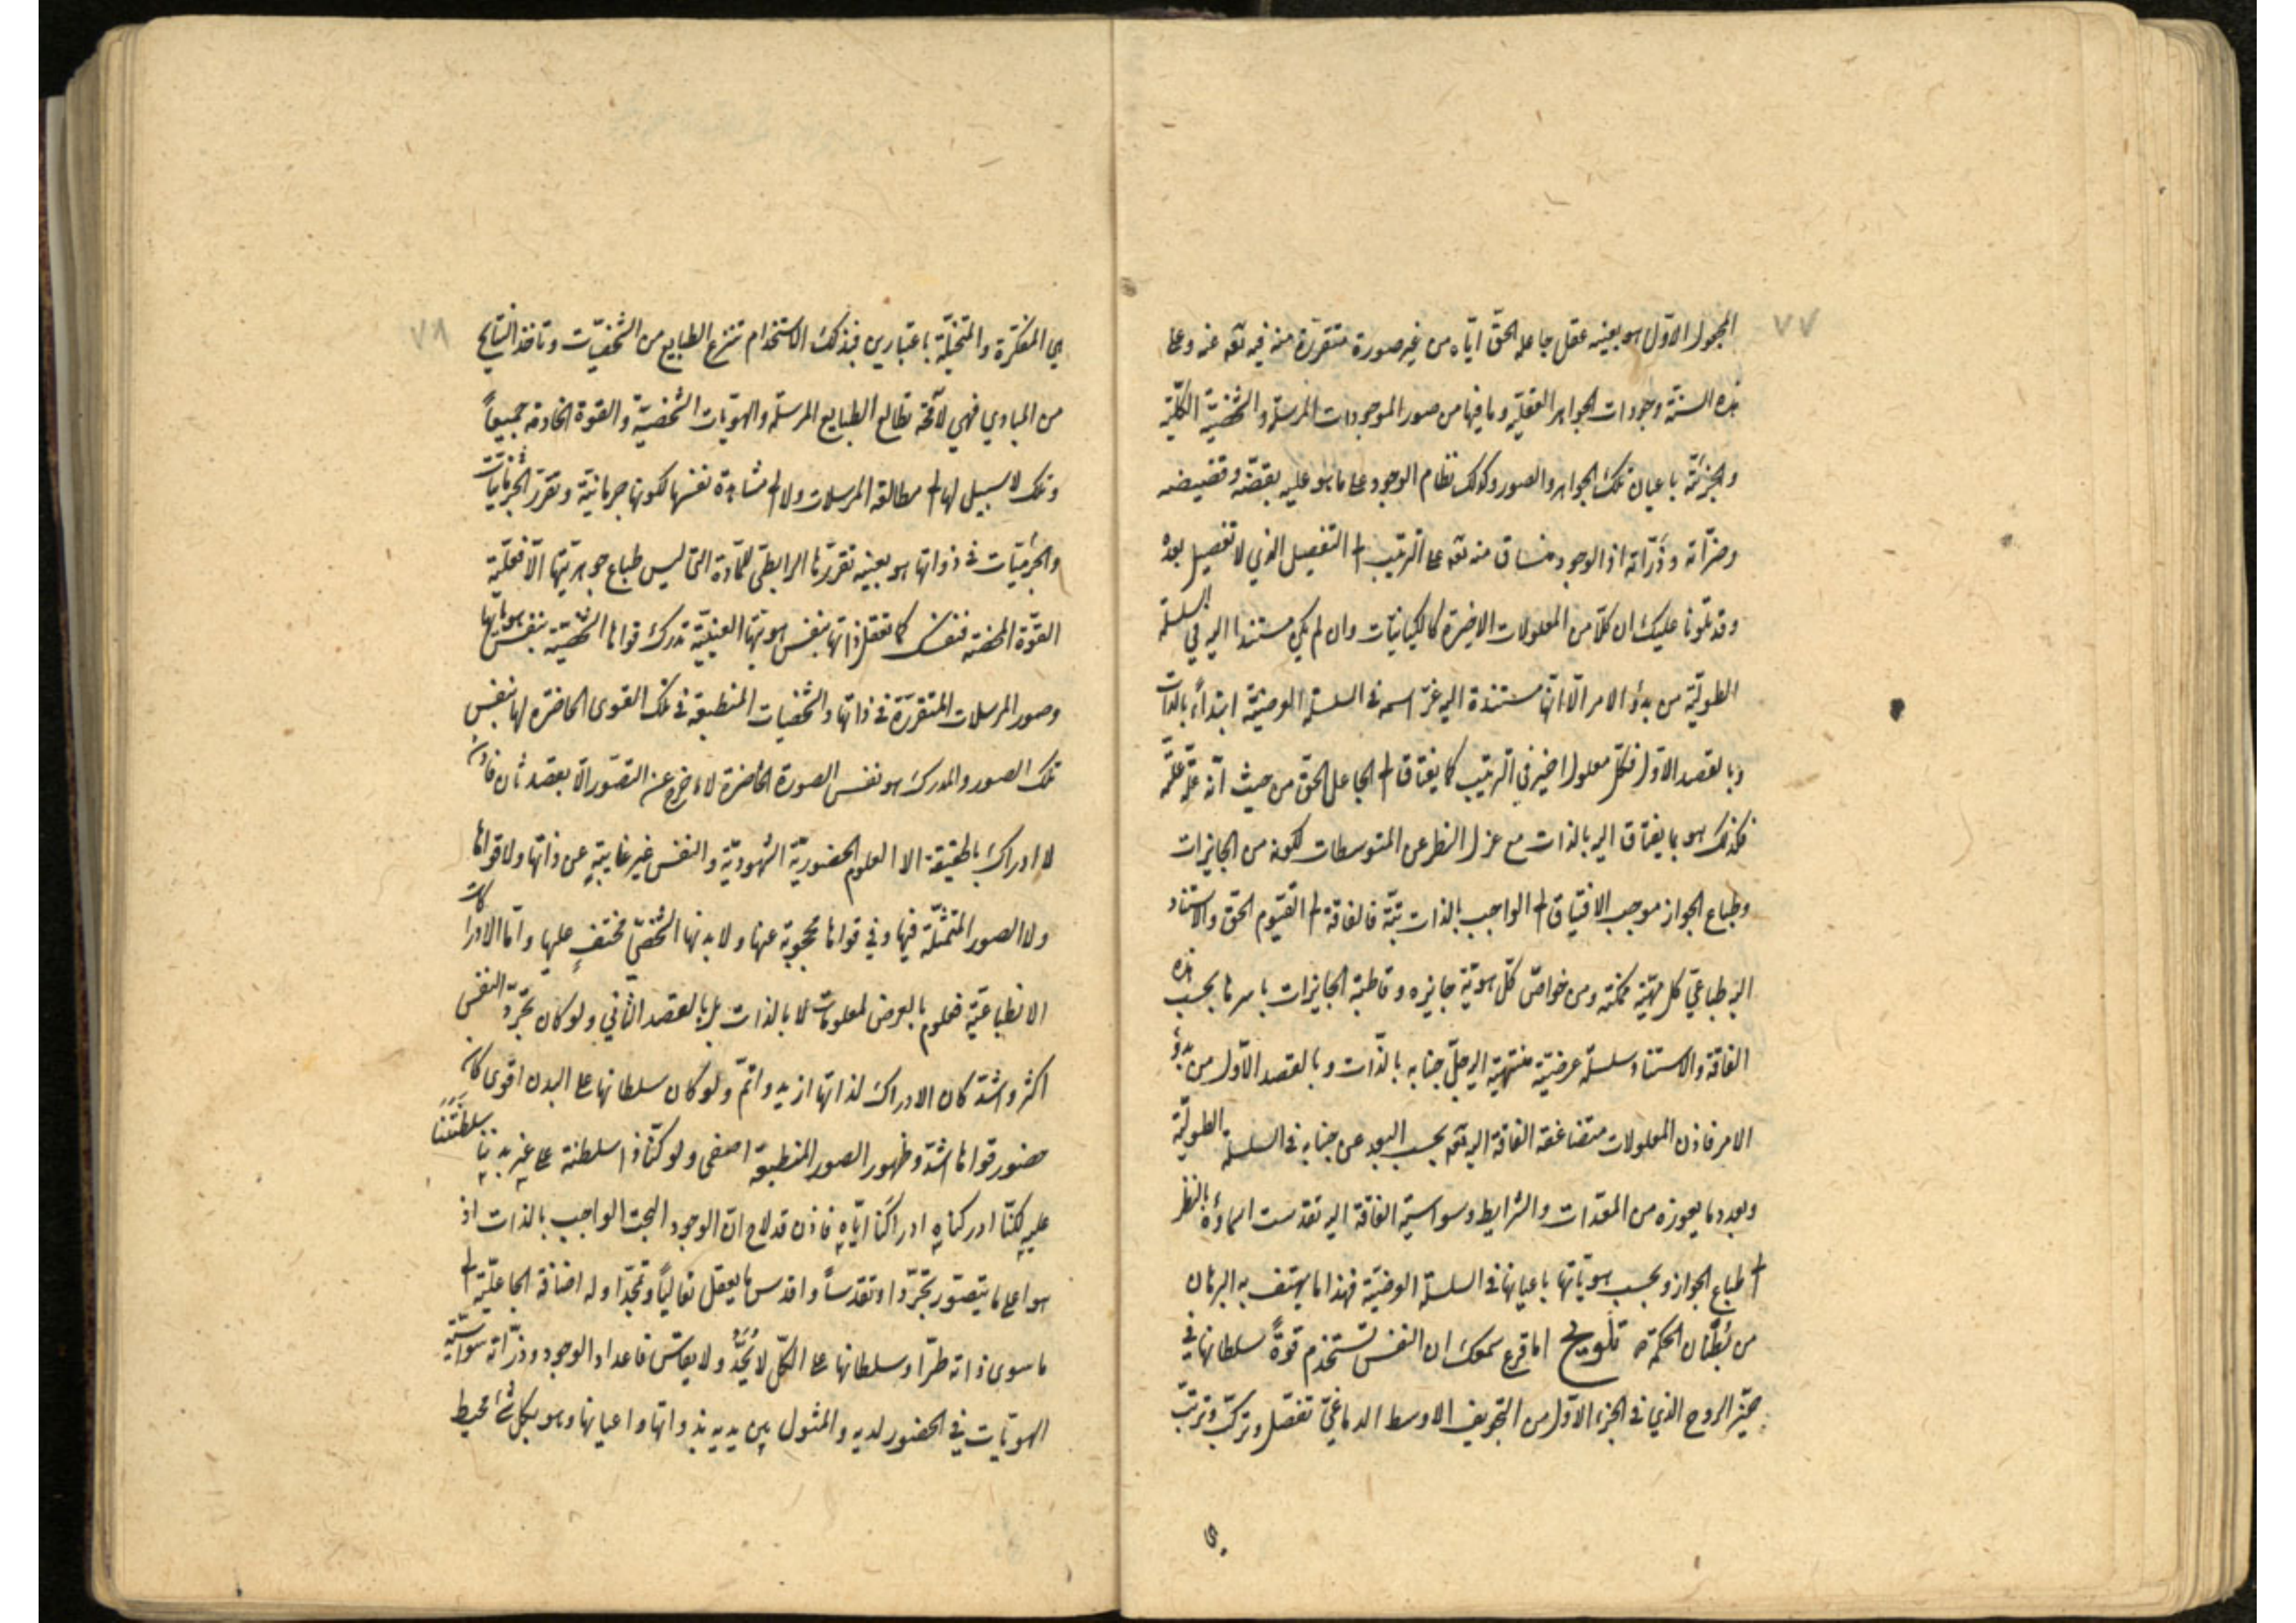 ٧٧
المجعول الاوّل هو بعينه عقل جاعله الحقّ ايّاه من غير صورة متقررة منه فيه تعه عنه وعلى
هذه السنّة وجودات الجواهر العقليّة وما فيها من صور الموجودات المرسلة والشخصيّة الكليّة
والجزئيّة باعيان تلك الجواهر والصور وكذلك نظام الوجود على ما هو عليه بقضّه وقضيضه
وضرّاته وذَرّاته اذ الوجود منساق منه تعه على الترتيب الى التفصيل الذي لا تفصيل بعده
وقد تلونا عليك ان كلّا من المعلولات الاخيرة كالكيانيّات وان لم يكن مستندا اليه في السلسلة
الطوليّة من بدؤ الامر الّا انّها مستندة اليه عزّ اسمه في السلسلة العرضيّة ابتداءً بالذات
وبالقصد الاوّل فكلّ معلول اخير في الترتيب كما يفتاق الى الجاعل الحقّ من حيث انّه علّة علّته
فكذلك هو بما يفتاق اليه بالذات مع عزل النظر عن المتوسطات لكونه من الجايزات
وطباع الجواز موجب الافتياق الى الواجب بالذات بتّة فالفاقة الى القيّوم الحق والاستناد
اليه طباعيّ كل مهيّة ممكنة ومن خواصّ كلّ هويّة جايزه وقاطبة الجايزات باسرها بحسب هذه
الفاقة والاستناد سلسلة عرضيّة منتهية اليه جلّ جنابه بالذّات وبالقصد الاوّل من بدؤ
الامر فاذن المعلولات متضاعفة الفاقة اليه تعه بحسب البعد عن جنابه في السلسلة الطوليّة
وبعدد ما يعوزه من المعدّات والشرايط وسواسيّة الفاقة اليه تقدست اسماؤه بالنظر
الى طباع الجواز وبحسب هويّاتها باعيانها في السلسلة العرضيّة فهذا ما يستف به البرهان
من بُطنان الحكمة تلويح اما قرع سمعك ان النفس تستخدم قوةً سلطانها في
حيّز الروح الذي في الجزء الاوّل من التجويف الاوسط الدماغيّ تفصّل وتركّب وترتّب
٧٨
هي المفكّرة والمتخيّلة باعتبارين فبذلك الاستخدام تنتزع الطبايع من الشخصيّات وتاخذ النتايج
من المبادي فهي لا محة تطالع الطبايع المرسلة والهويّات الشخصيّة والقوة الخادمة جميعاً
وتلك لا سبيل لها الى مطالعة المرسلات ولا الى مشاهدة نفسها لكونها جرمانيّة وتقرّر الجرمانيّات
والجرميّات في ذواتها هو بعينه تقرّرها الرابطي للمادّة التي ليس طباع جوهريّتها الّا فعليّة
القوّة المحضة فنفسك كما تعقل ذاتها بنفس هويّتها العينيّة تدرك قواها الشخصيّة بنفس هويّاتها
وصور المرسلات المتقرّرة في ذاتها والشخصيات المنطبعة في تلك القوى الحاضرة لها بنفس
تلك الصور والمدرك هو نفس الصورة الحاضرة لا ما خرج عن التصّور الّا بقصد ثان فاذن
لا ادراك بالحقيقة الا العلوم الحضوريّة الشهوديّة والنفس غير غايبةٍ عن ذاتها ولا قواها
ولا الصور المتمثّلة فيها وفي قواها محجوبة عنها ولا بدنها الشخصيّ مختفٍ عليها وامّا الادراكات
الانطباعيّة فعلوم بالعرض لمعلومات لا بالذات بل بالقصد الثاني ولو كان تجرّد النفس
اكثر واشدّ كان الادراك لذاتها ازيد واتمّ ولو كان سلطانها على البدن اقوى كان
حضور قواها اشدّ وظهور الصور المنطبعة اصفى ولو كنّا ذا سلطنة على غير بدننا سلطنتنا
عليه لكنّا ادركناه ادراكنا ايّاه فاذن قد لاح انّ الوجود البحت الواجب بالذات اذ
هو اعلى ما يتصوّر تجرّدا وتقدسّاً واقدس ما يعقل تعالياً وتمجّدا وله اضافة الجاعليّة الى
ما سوى ذاته طرّا وسلطانها على الكلّ لا يُحَدّ ولا يقاس فاعداد الوجود وذرّاته سواسيّة
الهويّات في الحضور لديه والمثول بين يديه بذواتها واعيانها وهو بكل شيء محيط